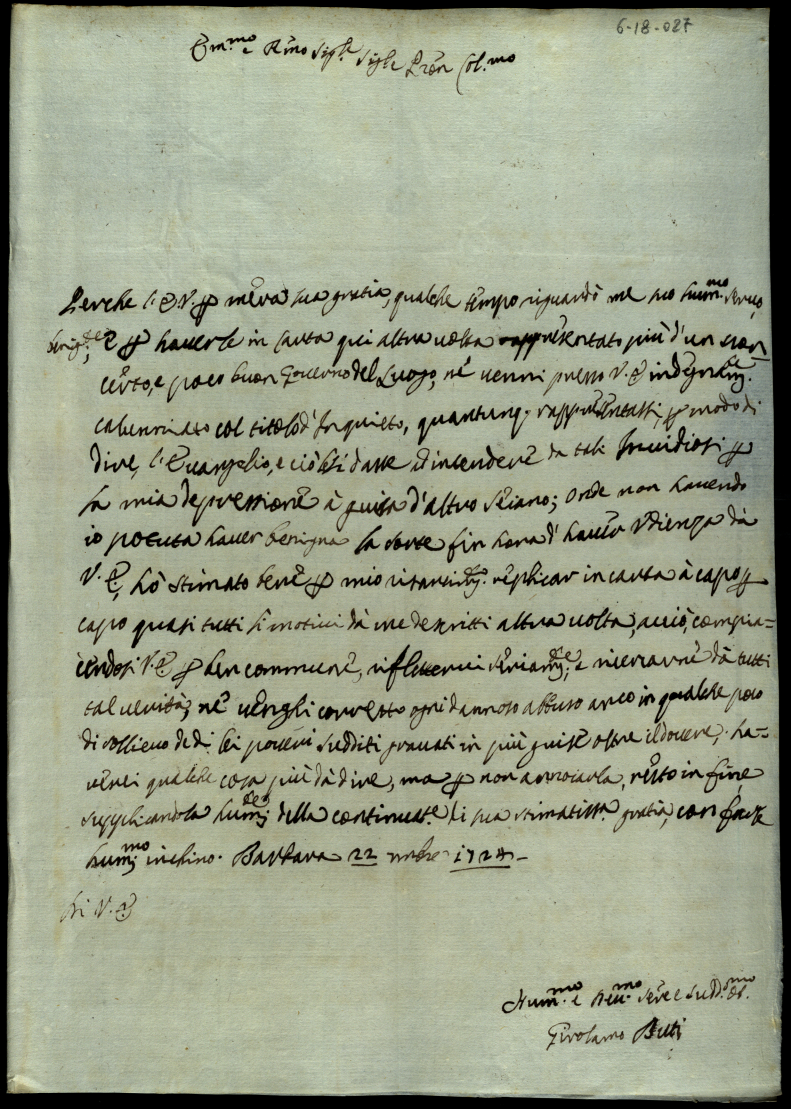 6-18-027
Em.mo e R.mo Sig.re Sig.re Pron Col.mo
Perche l'E.V. p mera sua gratia, qualche tempo riguardò me suo hum.mo servo,
E p haverle in carta qui altra volta rappresentato più d'un scon
certo, e poco buon Governo del Luogo, nè venni presso V.E. indegnam.te
calunniato col titolo d'Inquieto, quantunq. rappresentassi, p modo di
dire, l'Evangelio, e ciò lesi dasse ad intendere da tali Invidiosi p
la mia depressione à guisa d'altro Seiano; Onde non havendo
io potuta haver benigna la sorte fin hora d'haver Udienza dà
V.E., hò stimato bene p mio replicar in carta à capo p
capo quasi tutti li motivi dà me descritti altra volta, acciò, compia-
cendosi V.E. p ben commune, riflettervi seriam.te, e ricavarne dà tutti
tal verità, nè venghi corretto ogni dannoso abbuso anco in qualche poco
di sollievo de di lei poveri sudditi gravati in più guise oltre il dovere; ha-
verei qualche cosa più dà dire, ma p non annoiarla, resto in fine
supplicandola hum.te della continuat.e di sua stimatiss.a gratia, con farle
hum.mo inchino. Barbara 22 mbre 1724
Di V.E.
Hum.mo e Dev.mo Serv.e e Sudd.o Ob.mo
Girolamo Buti